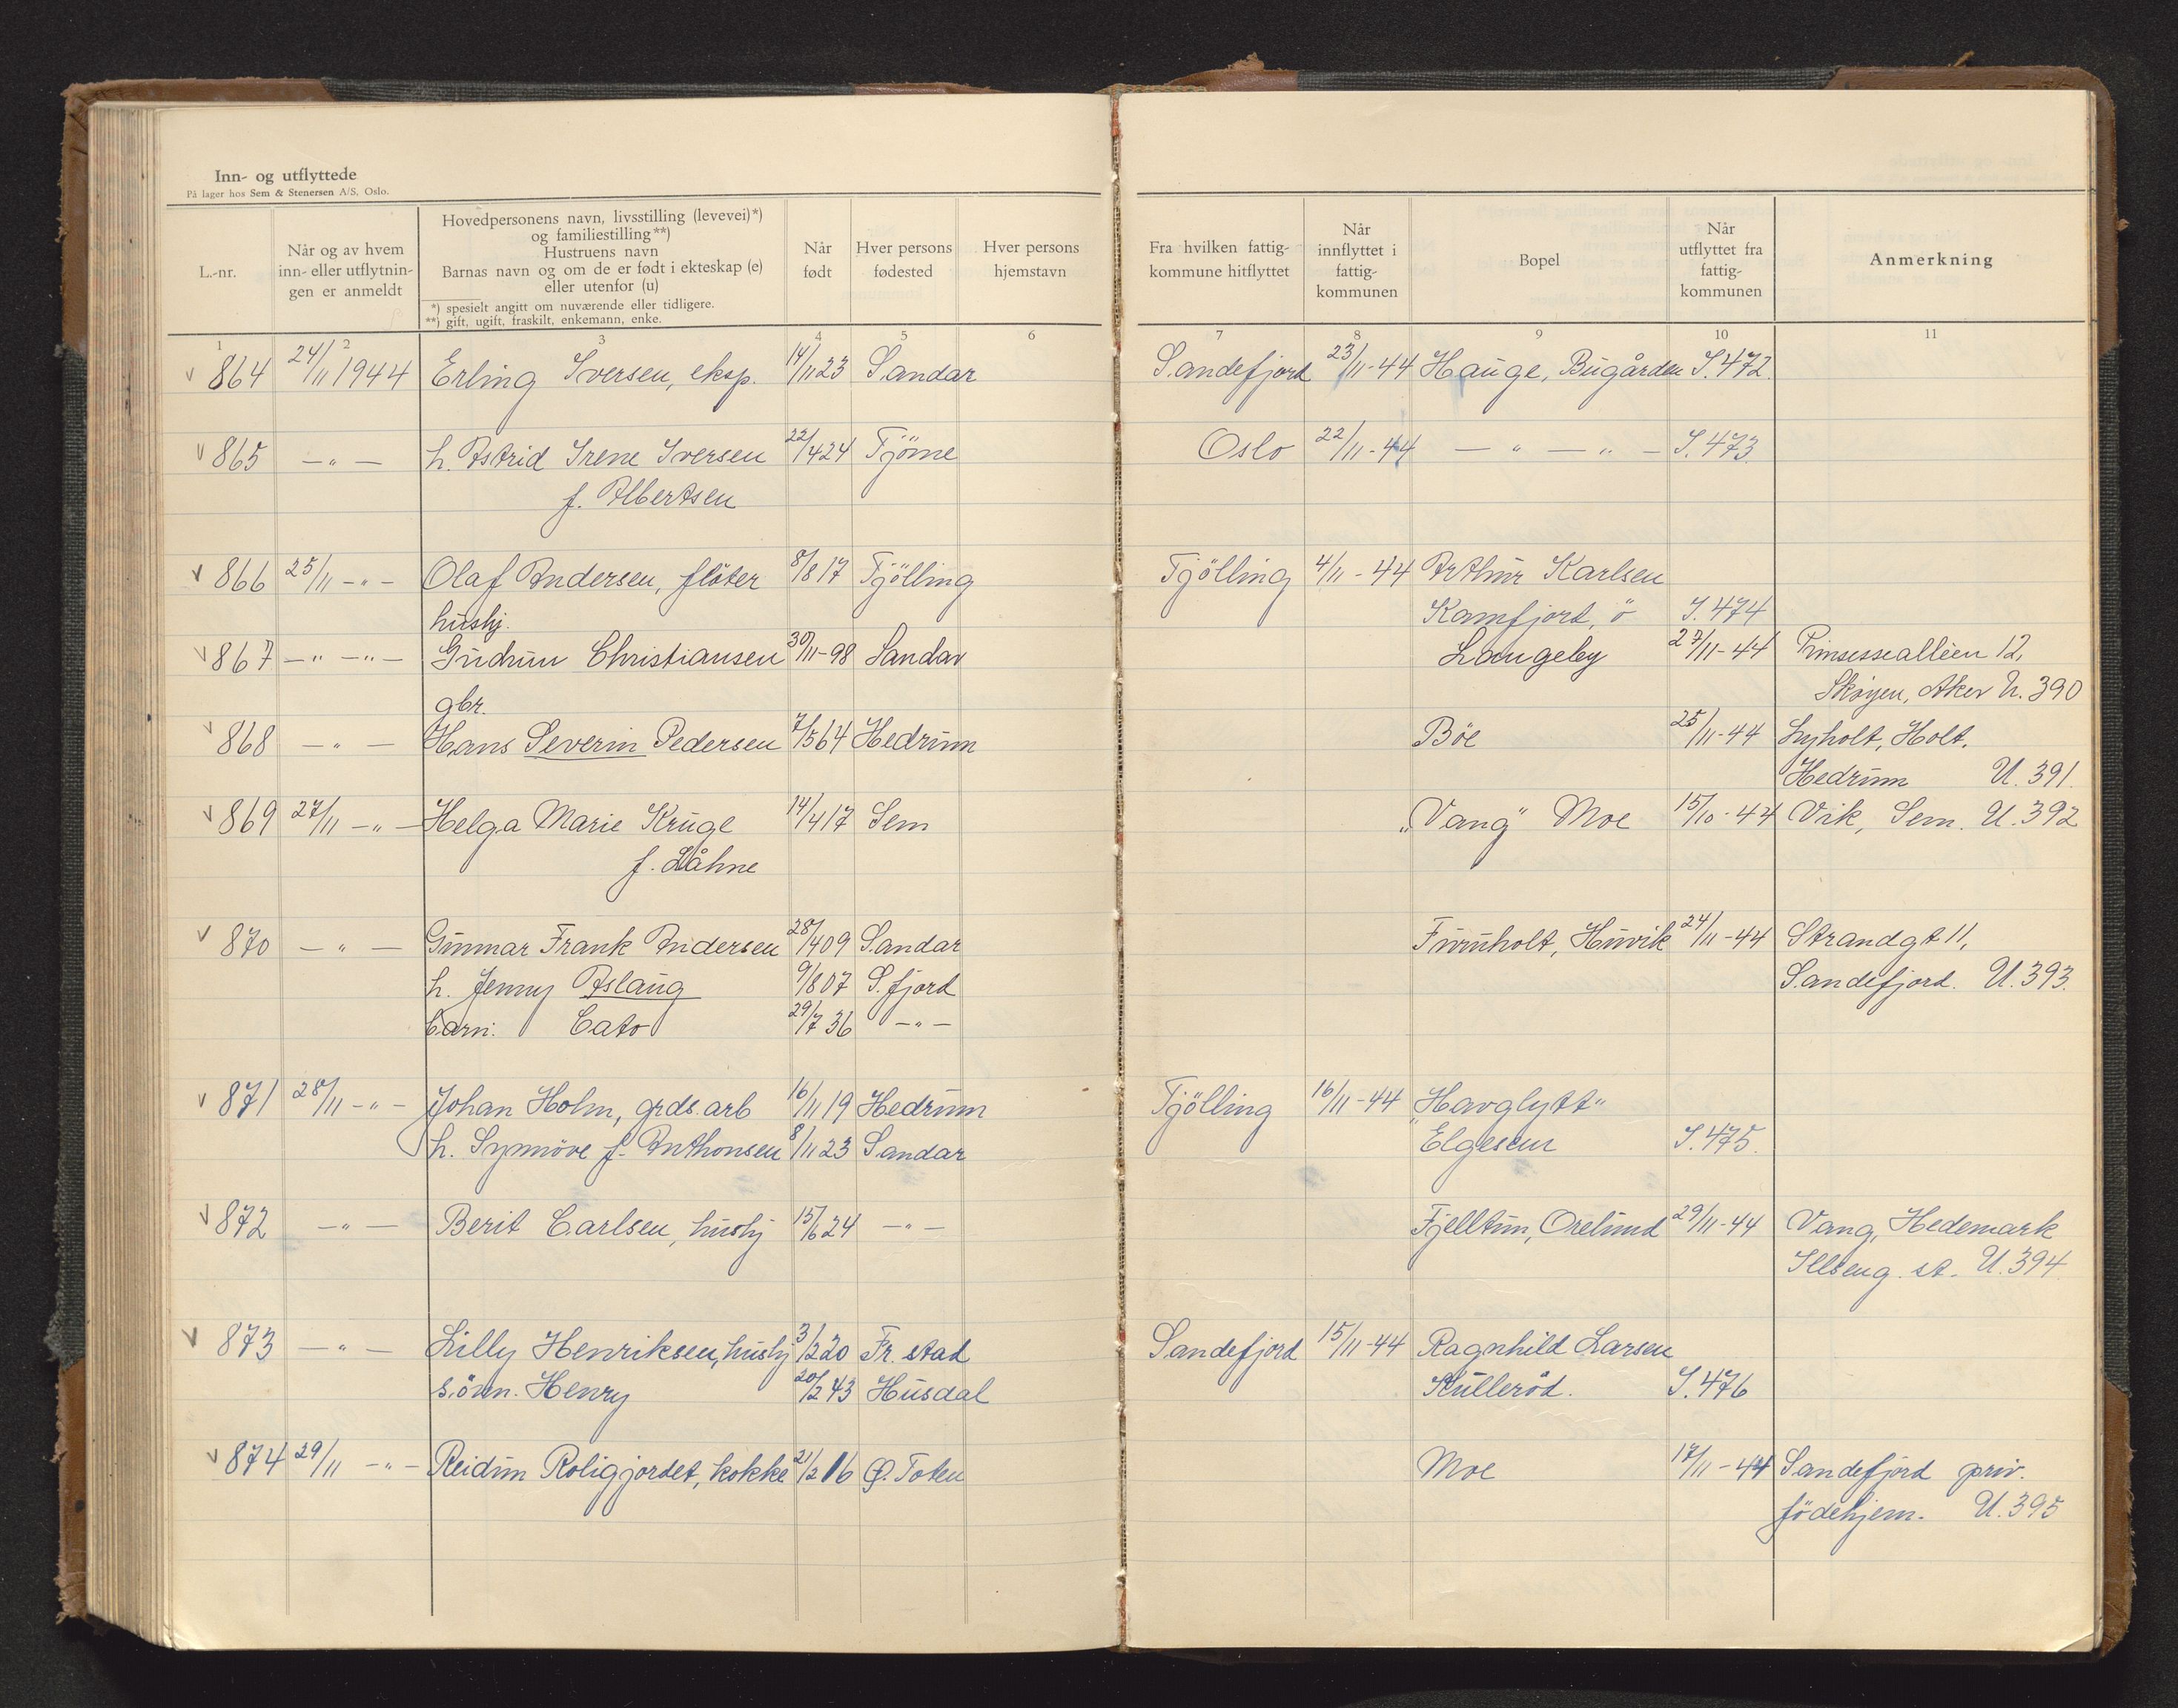 Inn- og utflyttede
På lager hos Sem & Stenersen A/S, Oslo.
L.-nr.
Når og av hvem
inn- eller utflytnin-
gen er anmeldt
Hovedpersonens navn, livsstilling (levevei)*)
og familiestilling**)
Hustruens navn
Barnas navn og om de er født i ekteskap (e)
eller utenfor (u)
*) spesielt angitt om nuværende eller tidligere.
**) gift, ugift, fraskilt, enkemann, enke.
Når
født
Hver persons
fødested
Hver persons
hjemstavn
Fra hvilken fattig-
kommune hitflyttet
Når
innflyttet i
fattig-
kommunen
Bopel
Når
utflyttet fra
fattig-
kommunen
Anmerkning
1 2 3 4 5 6 7 8 9 10 11
v 864 24/11 1944 Erling Iversen, eksp. 14/11 23 Sandar Sandefjord 23/11-44 Hauge, Bugården I. 472.
v 865 -"- h. Astrid Irene Iversen 22/4 24 Tjöme Oslo 22/11-44 -"-"- I. 473.
f. Albertsen
v 866 25/11 -"- Olaf Andersen, fløter 8/8 17 Tjölling Tjölling 4/11-44 Arthur Karlsen
Kamfjord, ö I. 474
hushj.
v 867 -"-"- Gudrun Christiansen 30/11-98 Sandar Langeby 27/11-44 Prinsessealléen 12,
Skøyen, Aker U. 390
gbr.
v 868 -"- Hans Severin Pedersen 7/5 64 Hedrum Böe 25/11-44 Lyholt, Holt,
Hedrum U. 391.
v 869 27/11 -"- Helga Marie Kruge 14/4 17 Sem „Vang" Moe 15/10-44 Vik, Sem. U. 392
f. Låhne
v 870 -"- Gunnar Frank Andersen 28/4 09 Sandar Furuholt, Huvik 24/11-44 Strandgt 11,
h. Jenny Aslaug 9/8 07 S.fjord Sandefjord. U. 393.
barn: Cato 29/7 36 -"-
v 871 28/11 -"- Johan Holm, grds.arb 16/11 19 Hedrum Tjölling 16/11-44 „Havglytt"
h. Synnöve f. Anthonsen 8/11 23 Sandar Elgesem I. 475.
v 872 -"- Berit Carlsen, hushj 15/6 24 -"- Fjelltun, Orelund 29/11-44 Vang, Hedemark
Ilseng st. U. 394
v 873 -"- Lilly Henriksen, hushj 3/2 20 Fr.stad Sandefjord 15/11-44 Ragnhild Larsen
sönn. Henry 20/2 43 Husdal Kulleröd. I. 476
v 874 29/11 -"- Reidun Roligjordet, kokke 21/2 16 Ø. Toten Moe 17/11-44 Sandefjord priv.
födehjem. U. 395